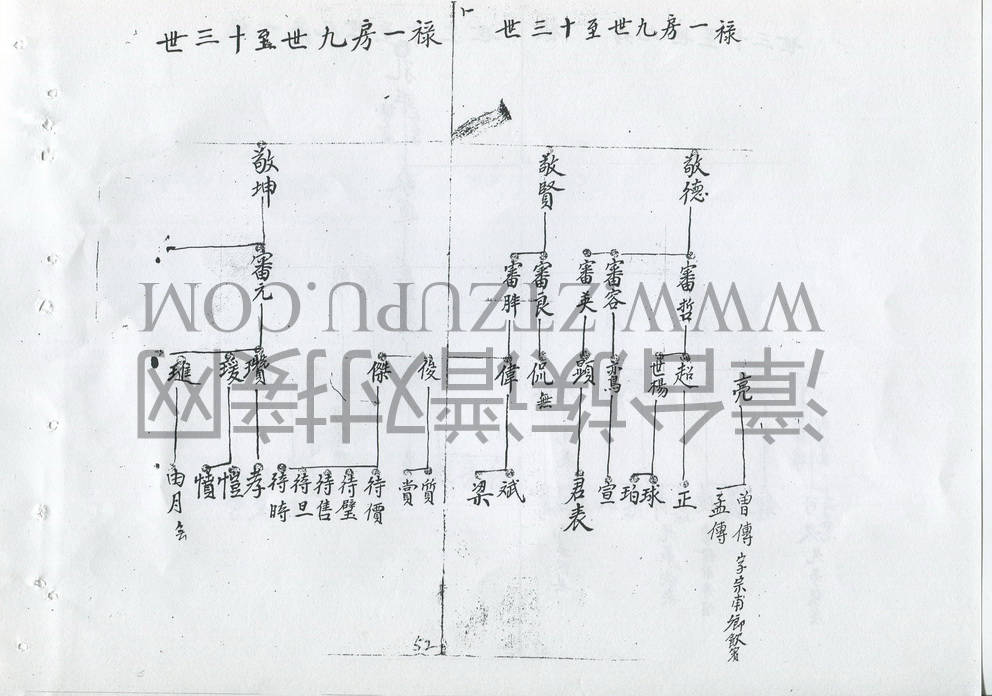 祿一房九世至十三世
敬德
敬賢
審哲
審容
審英
審良
審胖
亮
超
世楊
顕
侃
無
偉
曾傳 字宗甫鄉飲賓
孟傳
正
球
珀
宣
君表
斌
梁
祿一房九世至十三世
敬坤
審元
俊
傑
瓚
瑗
質
賞
待價
待璧
待售
待旦
待時
孝
愷
憤
52
WWW.ZTZUPU.COM
漳台族譜对接网